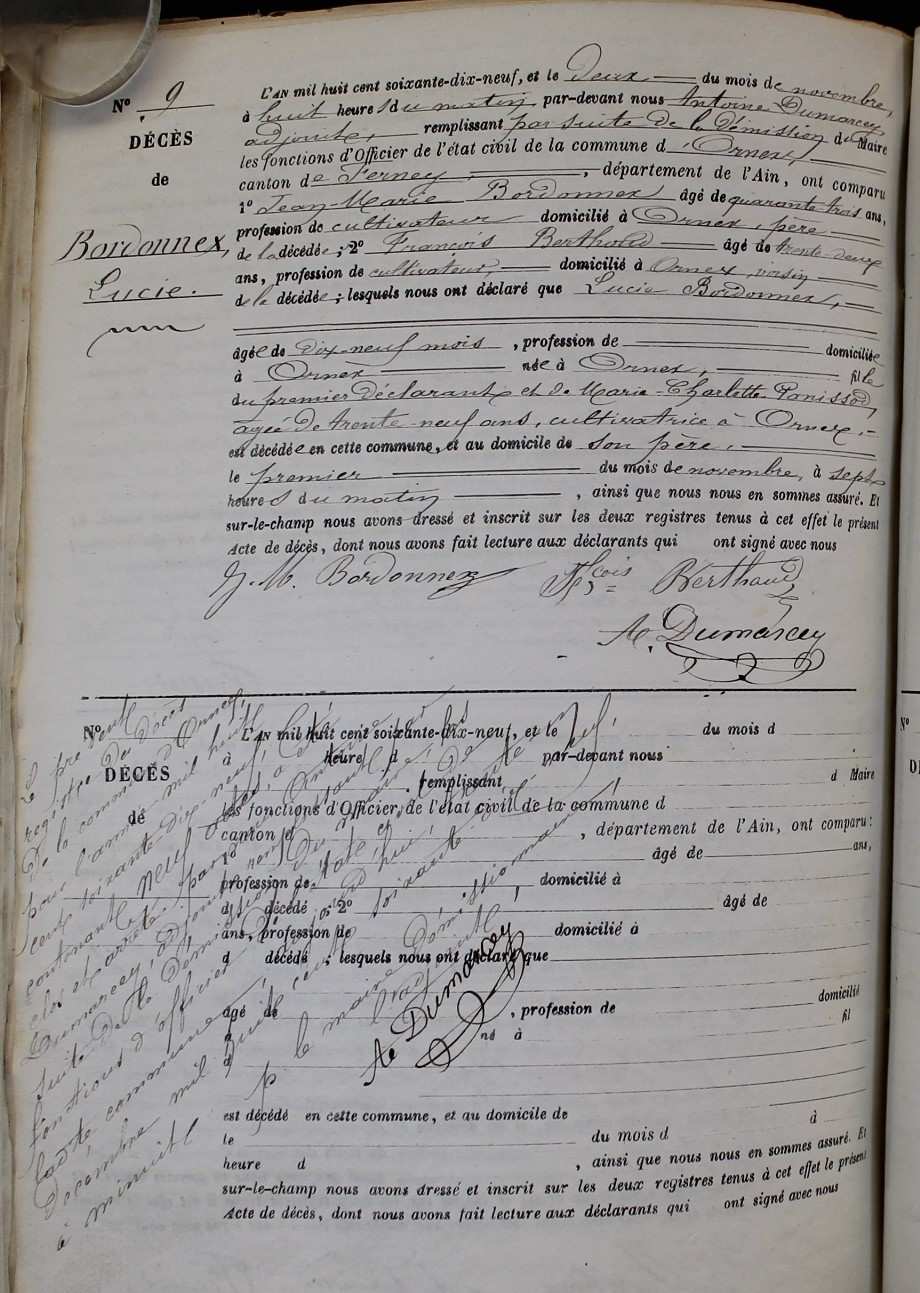 N° 9
DÉCÈS
de
Bordonnex,
Lucie.
L'AN mil huit cent soixante-dix-neuf, et le Deux du mois de novembre,
à huit heures du matin, par-devant nous Antoine Dumarcey,
adjoint, remplissant par suite de la démission de Maire
les fonctions d'Officier de l'état civil de la commune d'Ornex,
canton de Ferney, département de l'Ain, ont comparu
1° Jean-Marie Bordonnex âgé de quarante trois ans,
profession de cultivateur domicilié à Ornex, père
de la décédée ; 2° François Berthoud âgé de trente-deux
ans, profession de cultivateur, domicilié à Ornex, voisin
de la décédée ; lesquels nous ont déclaré que Lucie Bordonnex,
âgée de dix-neuf mois, profession de domiciliée
à Ornex née à Ornex, fille
du premier déclarant et de Marie-Charlotte Panissod,
agée de trente-neuf ans, cultivatrice à Ornex,
est décédée en cette commune, et au domicile de son père,
le premier du mois de novembre, à sept
heures du matin, ainsi que nous nous en sommes assuré. Et
sur-le-champ nous avons dressé et inscrit sur les deux registres tenus à cet effet le présent
Acte de décès, dont nous avons fait lecture aux déclarants qui ont signé avec nous
J. M. Bordonnex Fçois Berthoud
A. Dumarcey
N°
DÉCÈS
de
L'AN mil huit cent soixante-dix-neuf, et le du mois d
à heure d par-devant nous
, remplissant d Maire
les fonctions d'Officier de l'état civil de la commune d
canton d , département de l'Ain, ont comparu :
1° âgé de ans,
profession de , domicilié à
d décédé ; 2° âgé de
ans, profession de domicilié à
d décédé ; lesquels nous ont déclaré que
âgé de , profession de domicilié
à né à fil
d
est décédé en cette commune, et au domicile de
le du mois d à
heure d , ainsi que nous nous en sommes assuré. Et
sur-le-champ nous avons dressé et inscrit sur les deux registres tenus à cet effet le présent
Acte de décès, dont nous avons fait lecture aux déclarants qui ont signé avec nous
Le présent
registre de décès
de la commune d'Ornex,
pour l'année mil huit
cent soixante-dix-neuf,
contenant neuf actes, a été
clos et arrêté par nous Antoine
Dumarcey, adjoint, remplissant par
suite de la démission du maire, les
fonctions d'officier de l'état civil de
ladite commune, aujourd'hui, trente-un
Décembre mil huit cent soixante-dix-neuf,
à minuit
p le maire démissionnaire,
l'adjoint
A Dumarcey
N°
DÉ